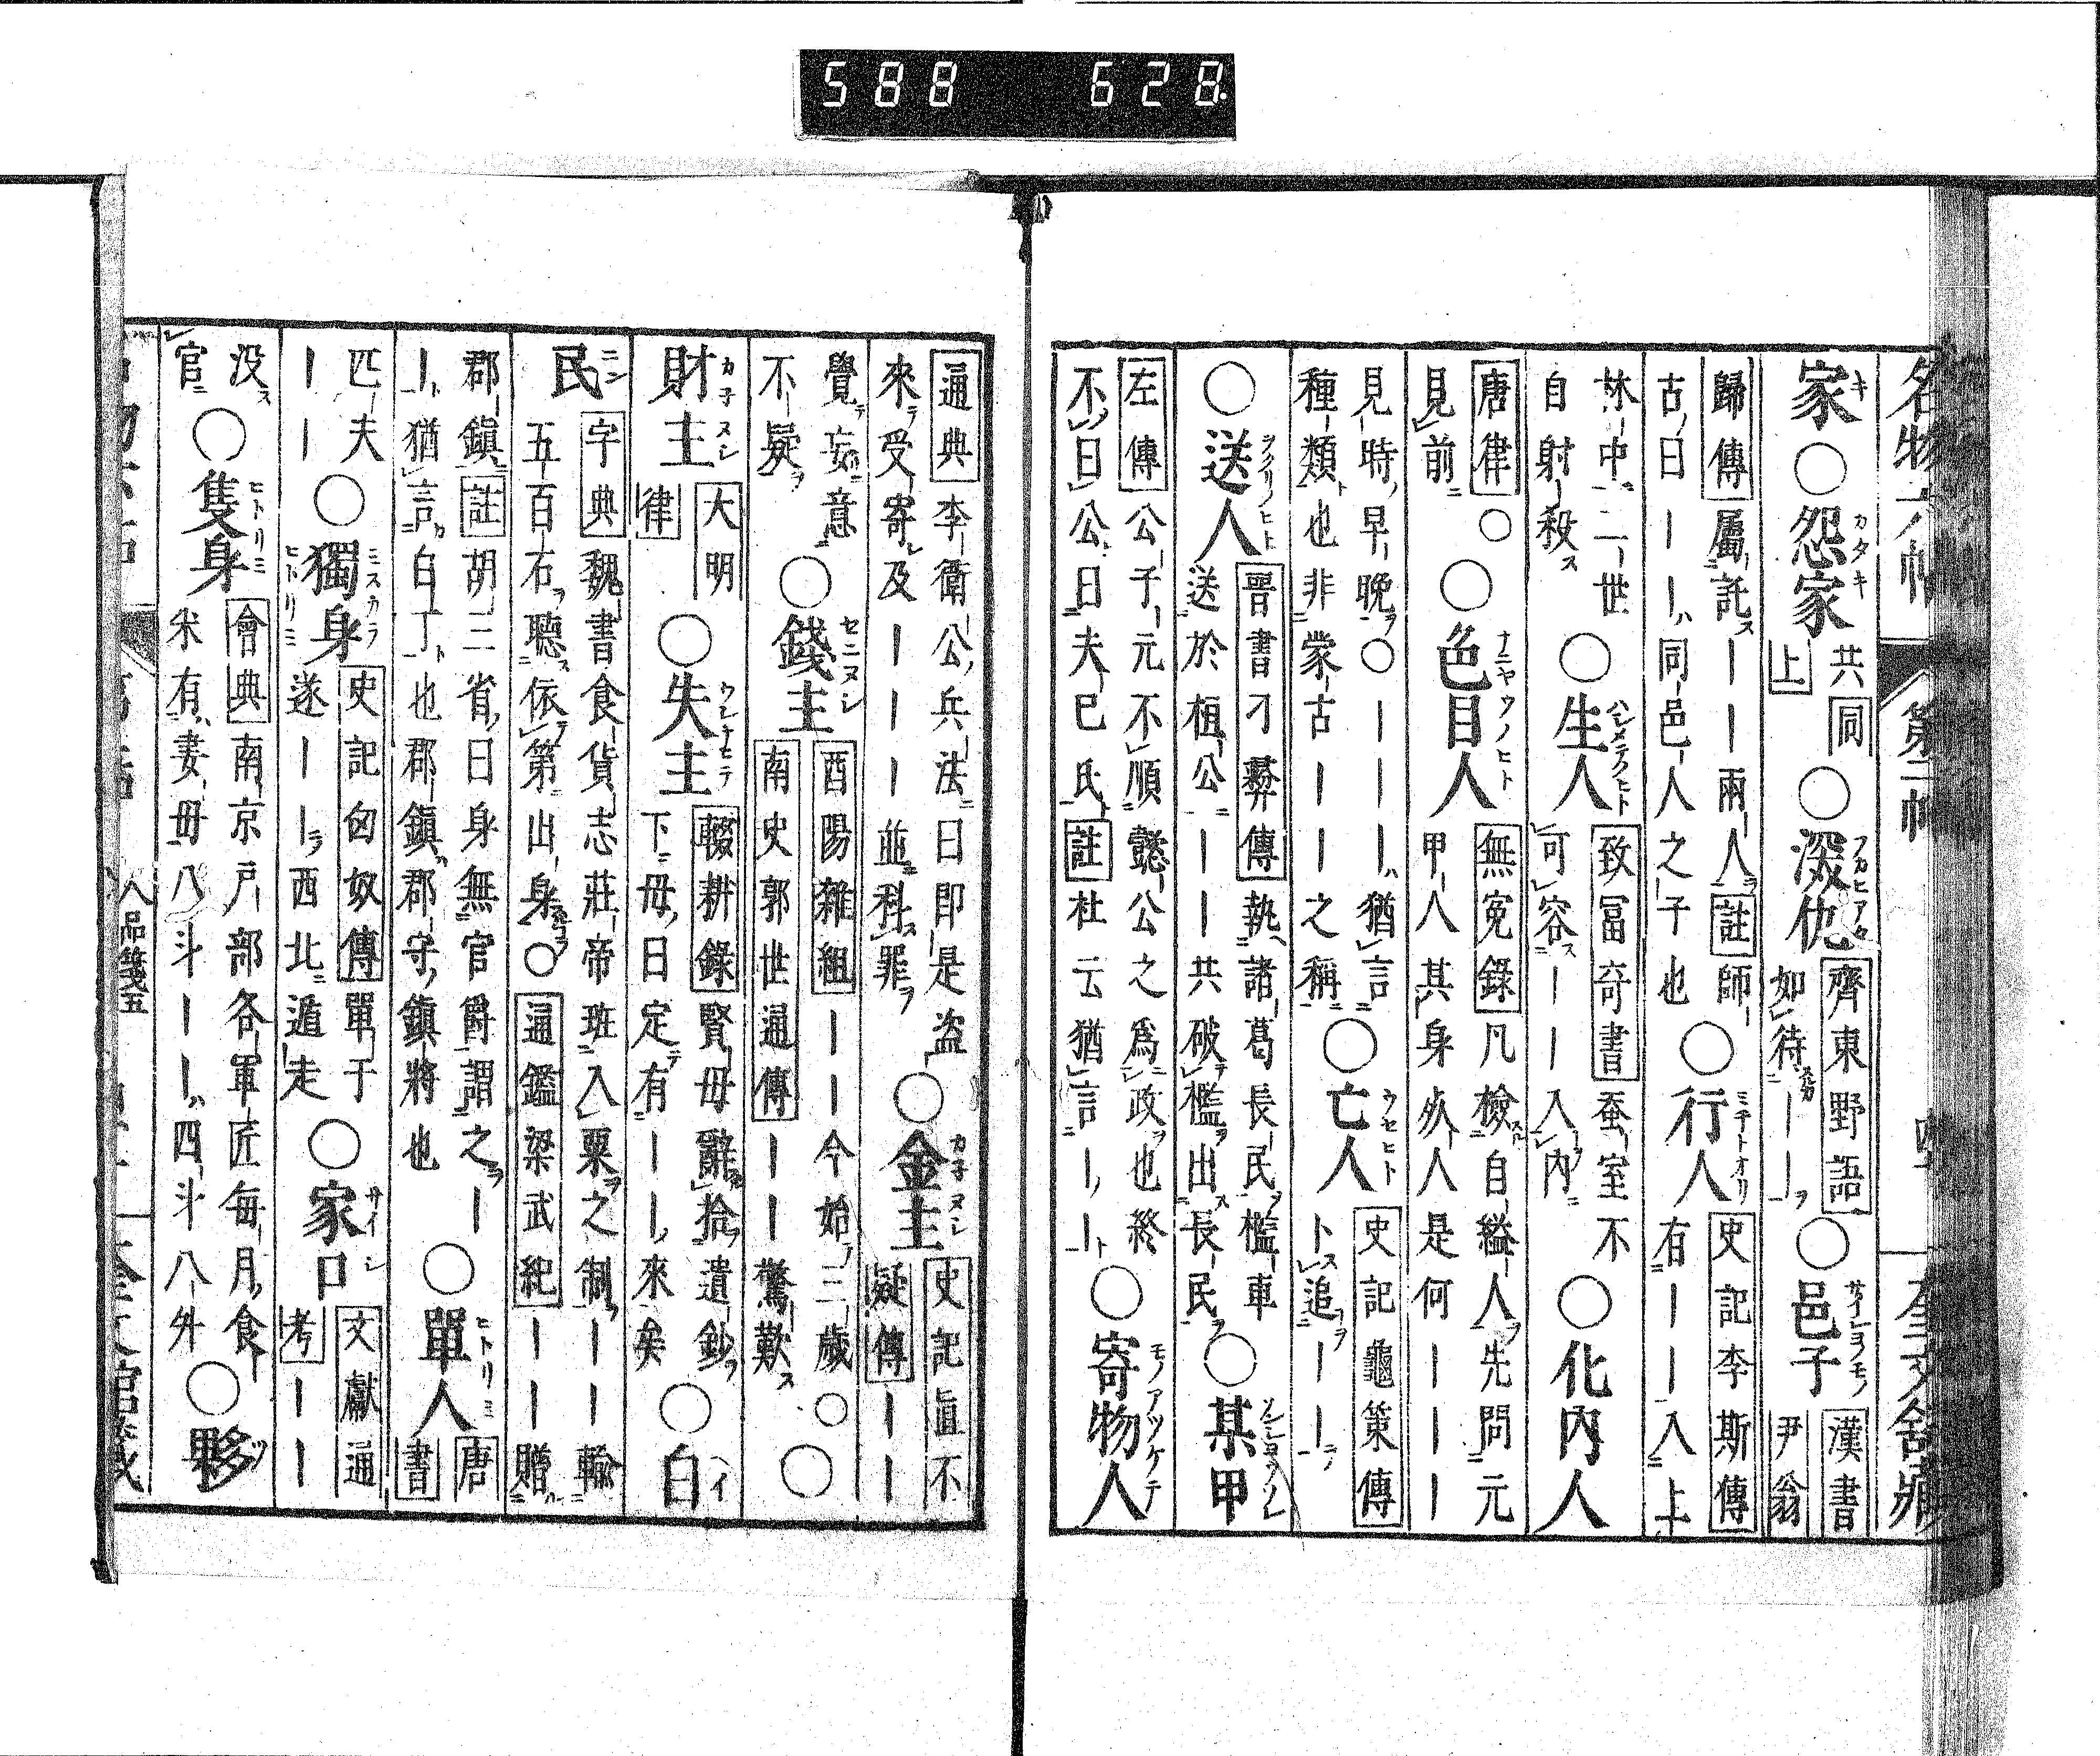 588 628.
名物六帖 第二帖
家 ○怨家 共同上 ○深仇 齊東野語 如待ーー ○邑子 漢書尹翁
歸傳 屬託ーー兩人 註 師古曰ーー同邑人之子也 ○行人 史記李斯傳 右ーー入上
林中 二世自射殺 ○生人 致富奇書 蚕室不可容ーー入內 ○化內人
唐律 ○見前 ○色目人 無冤錄 凡檢自縊人先問元甲人其身死人是何ーーー
見時早晚○ーーー猶言種類也非蒙古ーーー之稱 ○亡人 史記龜策傳 卜追ーー
○送人 晉書刁彝傳 執諸葛長民檻車送於桓公ーー共破檻出長民 ○某甲
左傳 公子元不順懿公之為政也終不曰公曰夫己氏 註 杜云猶言ーー ○寄物人
通典 李衛公兵法曰即是盜來受寄及ーーー並科罪 ○金主 史記直不疑傳 ーー
覺妄意不疑 ○錢主 酉陽雜組 ーー今始三歲○南史郭世通傳 ーー驚歎 ○
財主 大明律 ○失主 輟耕錄 賢母辭拾遺鈔下母曰定有ーー來矣 ○白
民 字典 魏書食貨志莊帝班入粟之制ーー輸五百石聽依第出身○通鑑梁武紀 ーー贈
郡鎮 註 胡三省曰身無官爵謂之ーー猶言白丁也郡鎮郡守鎮將也 ○單人 唐書
匹夫ーー ○獨身 史記匈奴傳 單于遂ーー西北遁走 ○家口 文獻通考 ーー
没官 ○隻身 會典 南京戶部各軍匠每月食米有妻母八斗ーー四斗八外 ○夥
人品箋五